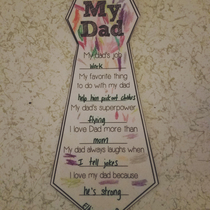 My
Dad
My dad's job
work
My favorite thing
to do with my dad
help him pick out clothes
My dad's superpower
flying
I love Dad more than
mom
My dad always laughs when
I tell jokes
I love my dad because
he's strong